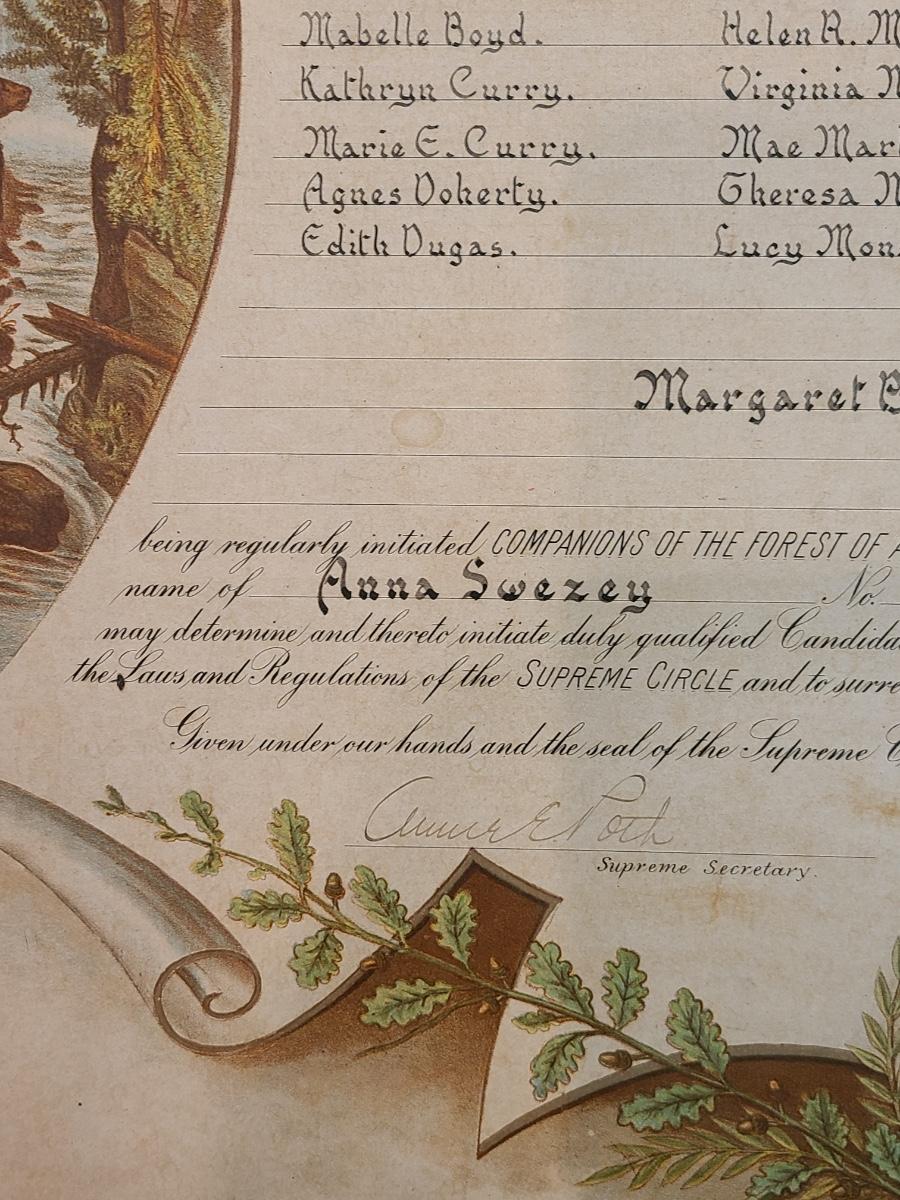 Mabelle Boyd. Helen R. M
Kathryn Curry. Virginia M
Marie E. Curry. Mae Mar
Agnes Doherty. Theresa M
Edith Dugas. Lucy Mon
Margaret
being regularly initiated COMPANIONS OF THE FOREST OF A
name of Anna Swezey No.
may determine and thereto initiate duly qualified Candida
the Laws and Regulations of the SUPREME CIRCLE and to surre
Given under our hands and the seal of the Supreme C
E. Roth
Supreme Secretary.